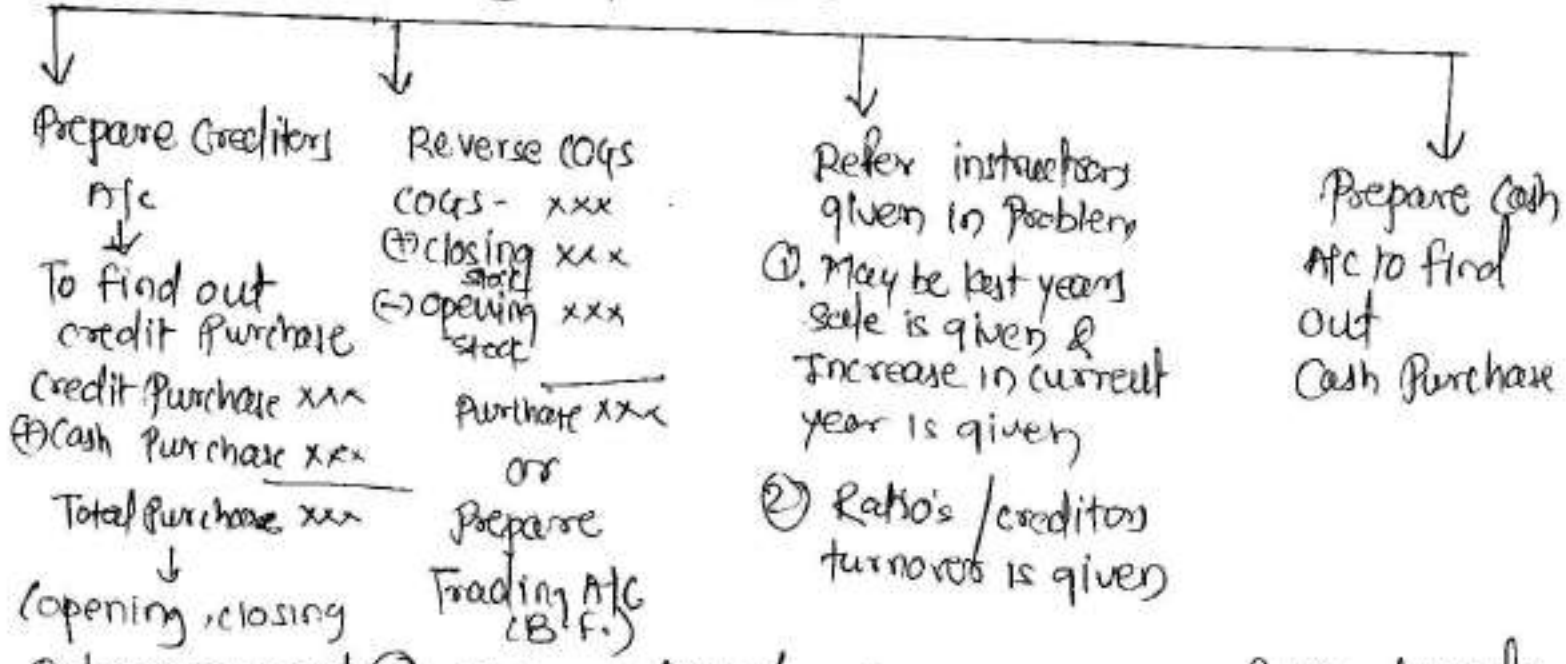 Prepare Creditors
A/c
To find out
credit Purchase
Credit Purchase xxx
(+) Cash Purchase xxx
Total Purchase xxx
(opening, closing
Reverse COGS
COGS - xxx
(+) closing xxx
stock
(-) opening xxx
stock
Purchase xxx
or
Prepare
Trading A/C
(B.F.)
Refer instructions
given in Problem
①. May be last years
sale is given &
Increase in current
year is given
② Ratio's / creditors
turnover is given
Prepare Cash
A/C to find
out
Cash Purchase